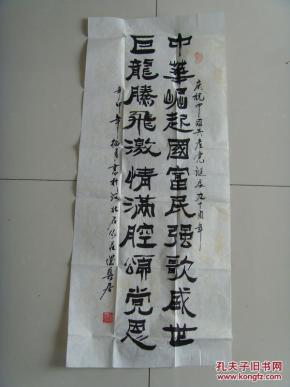 庆祝中国共产党诞辰九十周年
中華崛起國富民强歌盛世
巨龍騰飛激情滿腔頌党恩
辛卯年
孔夫子旧书网